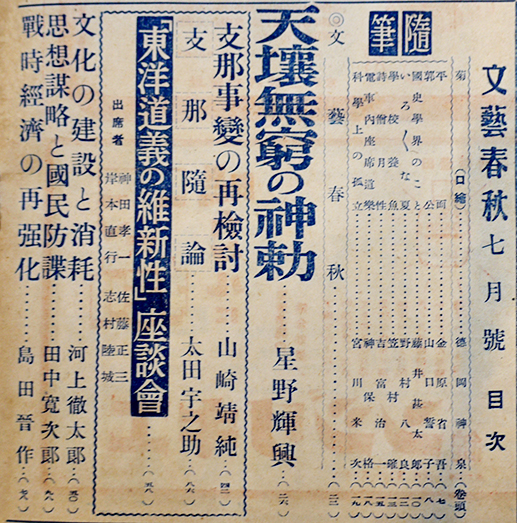 文藝春秋七月號 目次
菊(口繪)……德岡神泉…(卷頭)
隨筆
平面……金原省吾…(七)
郭公……山口誓子…(八)
國史學界のこと……藤井甚太郎…(一〇)
いろ〳〵な夏……野村八良…(一二)
學校養魚……笠村確
詩繪月性……吉富治一
電車內座席道樂……神保格
科學上の孤立……宮川米次
◎文藝春秋……(三二)
天壤無窮の神勅……星野輝興…(二六)
支那事變の再檢討……山崎靖純…(四二)
支那隨論……太田宇之助…(八六)
「東洋道義の維新性」座談會……(五八)
出席者 神田孝一 佐藤正三 岸本直行 志村陸城
文化の建設と消耗……河上徹太郎…(五〇)
思想謀略と國民防諜……田中寬次郎…(九六)
戰時經濟の再强化……島田晉作…(七八)